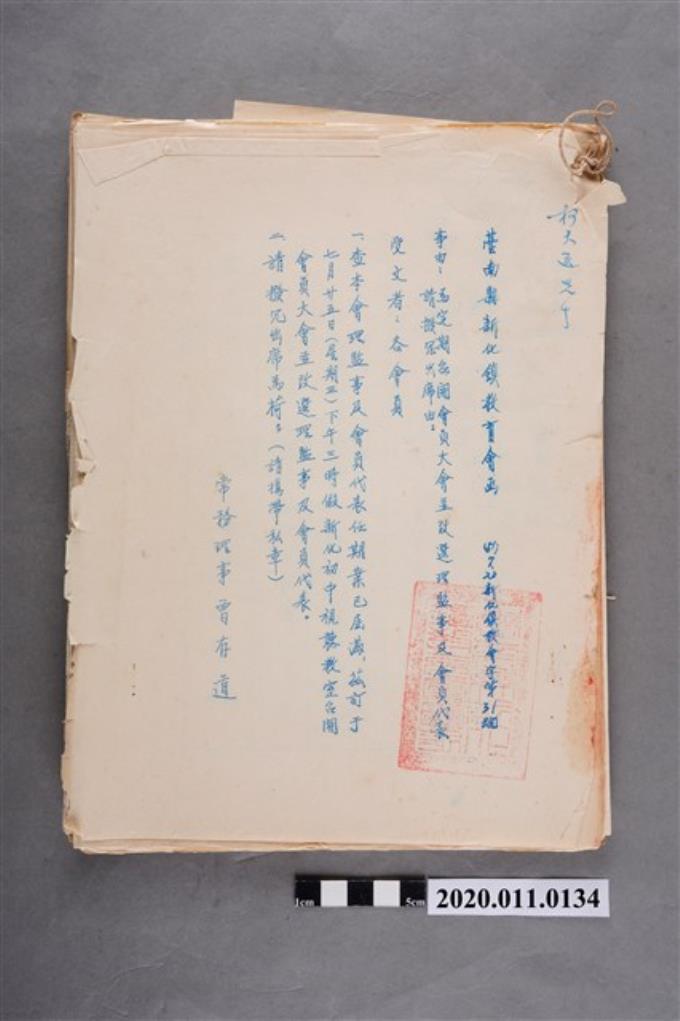 柯大進先生
臺南縣新化鎮教育會函
新化鎮教會字第31號
事由：為定期召開會員大會並改選理監事及會員代表
請撥冗出席由：
受文者：各會員
一、查本會理監事及會員代表任期業已屆滿，茲訂于
七月廿五日（星期三）下午三時假新化初中視聽教室召開
會員大會並改選理監事及會員代表。
二、請撥冗出席為荷：（請攜帶私章）
常務理事 曾存道
1cm
5cm
2020.011.0134